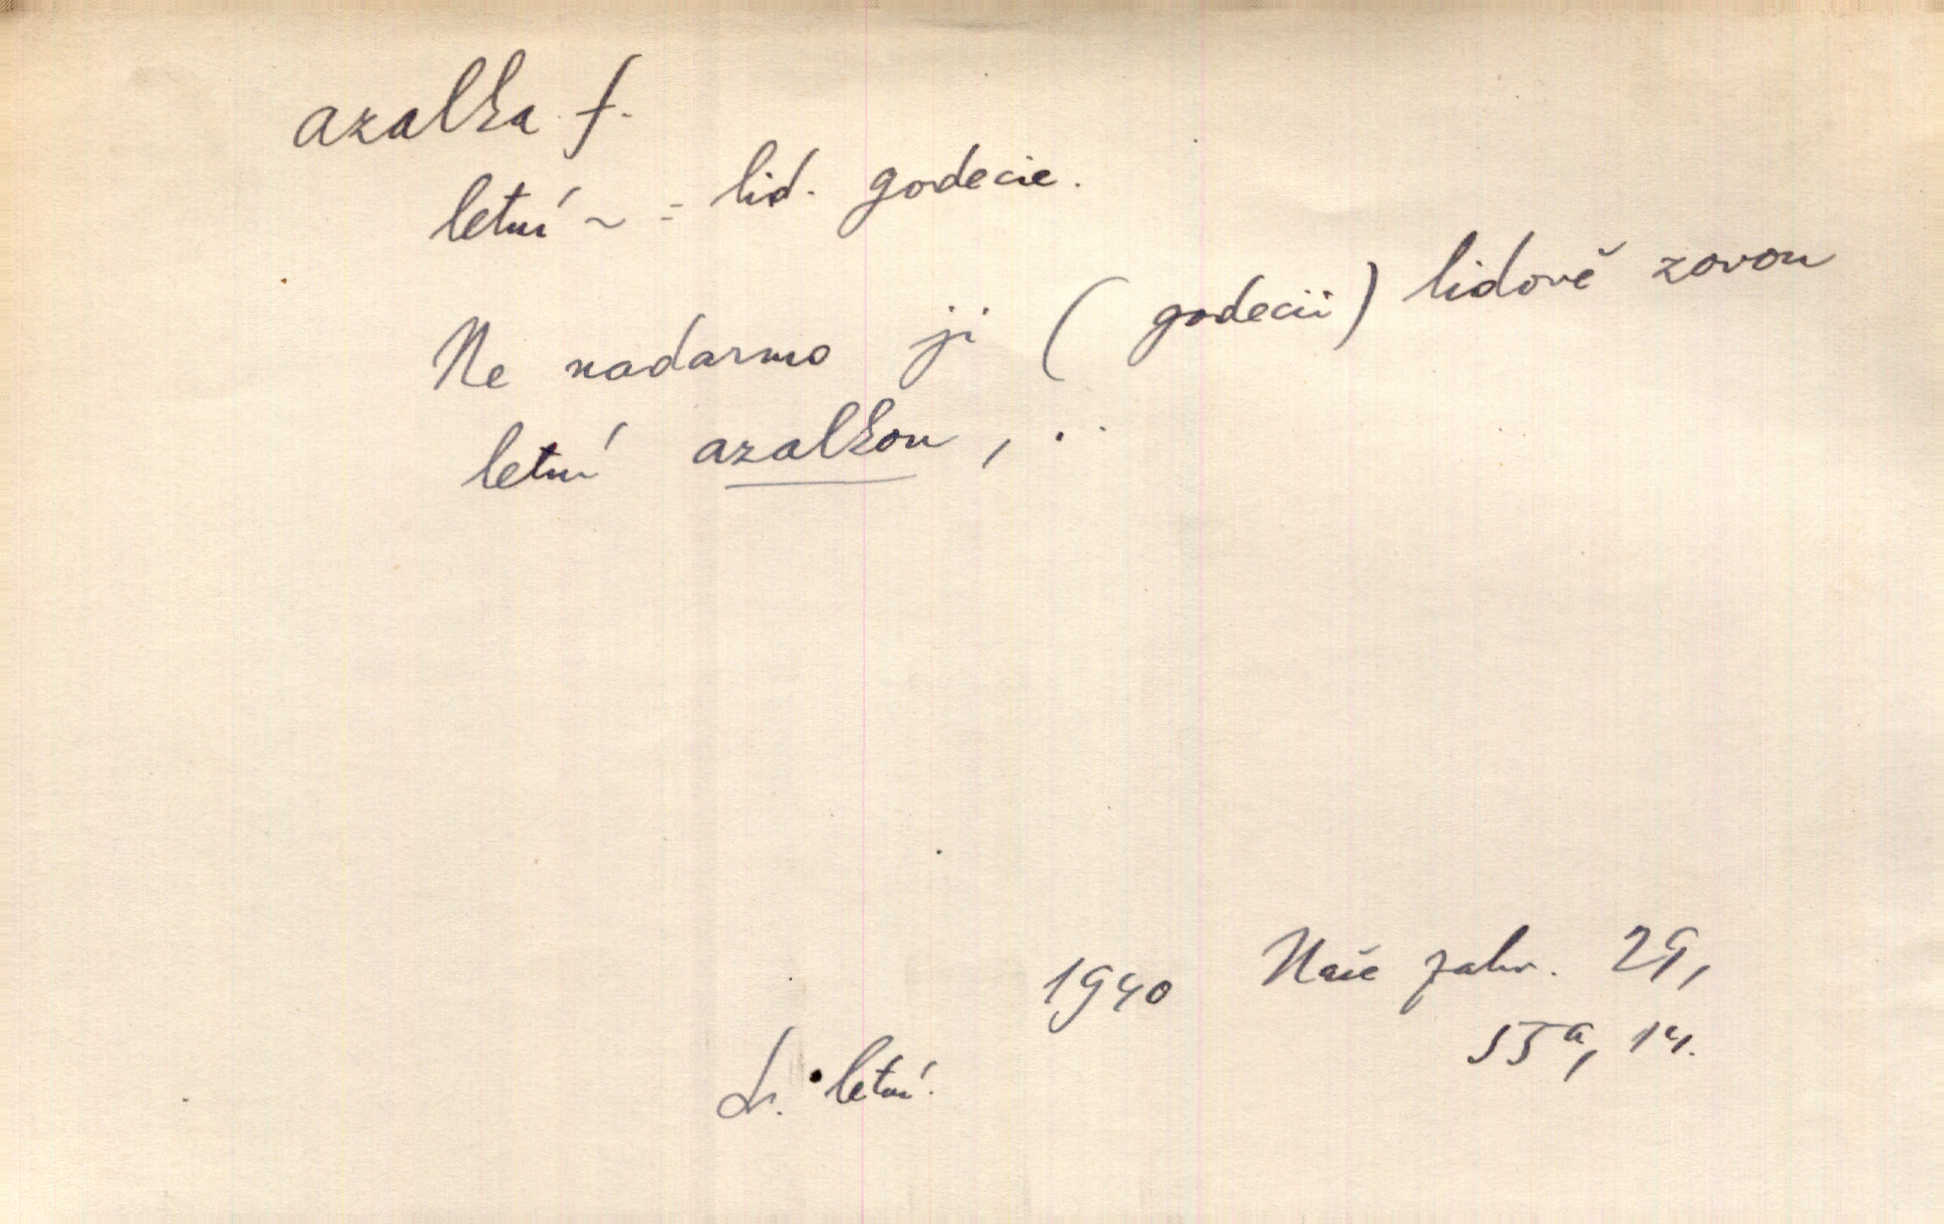 azalka f.
letní ~ = lid. godecie.
Ne nadarmo ji (godecii) lidově zovou
letní azalkou, ..
1940 Naše zahr. 29,
55a, 14.
letní.